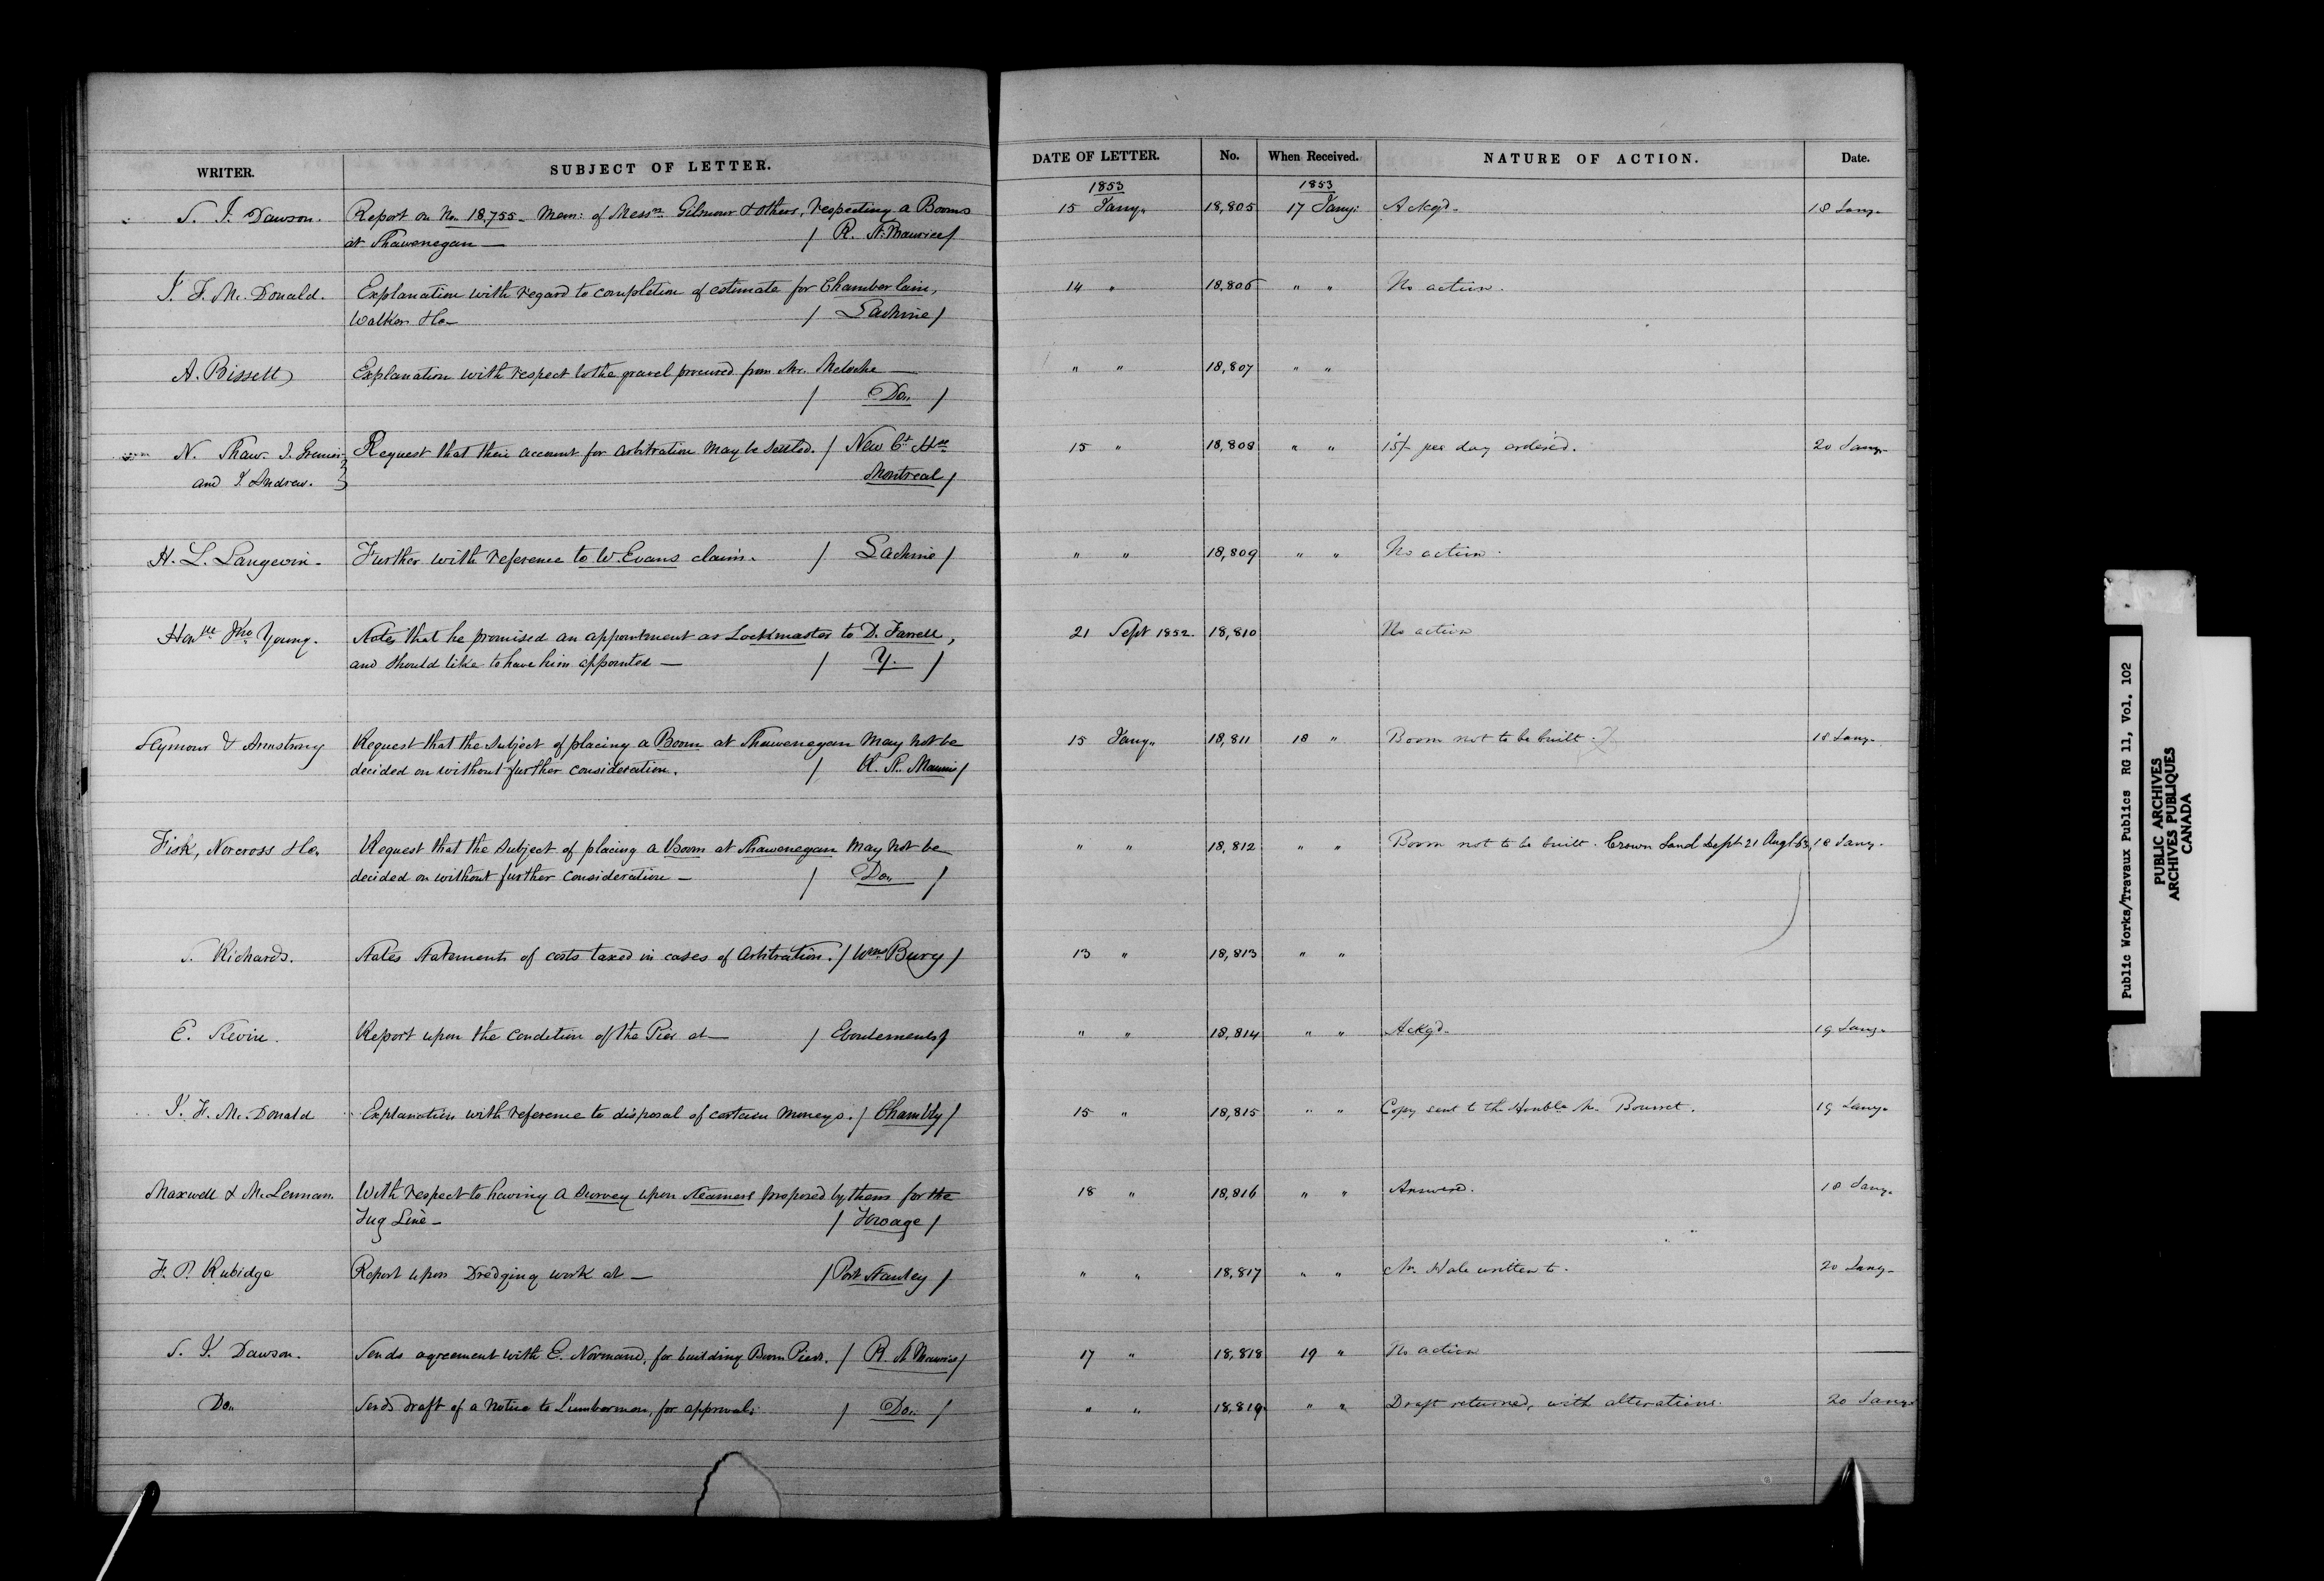 WRITER. SUBJECT OF LETTER. DATE OF LETTER. No. When Received. NATURE OF ACTION. Date.
1853 1853
S. J. Dawson. Report on No. 18,755 - Mem: of Messrs. Gilmour & others, respecting a Booms 15 Jany. 18,805 17 Jany: Ackgd. 18 Jany.
at Shawenegan — / R. St. Maurice /
J. F. Mc. Donald. Explanation with regard to completion of estimate for Chamberlain, 14 " 18,806 " " No action.
Walker & Co — / Lachine /
A. Bissett Explanation with respect to the gravel procured from Mr. Meloche — " " 18,807 " "
/ Do. /
N. Shaw J. Grenier Request that their account for arbitration may be settled. / New Ct. Hse 15 " 18,808 " " 15/- per day ordered. 20 Jany.
and J. Andrew. Montreal /
H. L. Langevin. Further with reference to W. Evans claim. / Lachine / " " 18,809 " " No action.
Honble Jno. Young. States that he promised an appointment as Lockmaster to D. Farrell, 21 Sept 1852. 18,810 No action
and should like to have him appointed — / Y. /
Seymour & Armstrong Request that the subject of placing a Boom at Shawenegan may not be 15 Jany. 18,811 18 " Boom not to be built. 18 Jany.
decided on without further consideration. / R. St. Maurice /
Fisk, Norcross & Co. Request that the subject of placing a Boom at Shawenegan may not be " " 18,812 " " Boom not to be built. Crown Land Dept 21 Augt 18 Jany.
decided on without further consideration — / Do. /
S. Richards. States statements of costs taxed in cases of Arbitration. / Wms Bury / 13 " 18,813 " "
E. Slevin. Report upon the condition of the Pier at — / Eboulements / " " 18,814 " " Ackgd. 19 Jany.
J. F. Mc. Donald Explanation with reference to disposal of certain moneys. / Chambly / 15 " 18,815 " " Copy sent to the Honble Mr. Bourret. 19 Jany.
Maxwell & McLennan. With respect to having a survey upon steamers proposed by them for the 18 " 18,816 " " Answered. 18 Jany.
Tug Line — / Towage /
F. P. Rubidge Report upon Dredging work at — / Port Stanley / " " 18,817 " " Mr. Hale written to. 20 Jany.
S. J. Dawson. Sends agreement with E. Normand, for building Boom Piers. / R. St Maurice / 17 " 18,818 19 " No action
Do. Sends draft of a Notice to Lumbermen, for approval: / Do. / " " 18,819 " " Draft returned, with alterations. 20 Jany.
Public Works/Travaux Publics RG 11, Vol. 102
PUBLIC ARCHIVES
ARCHIVES PUBLIQUES
CANADA